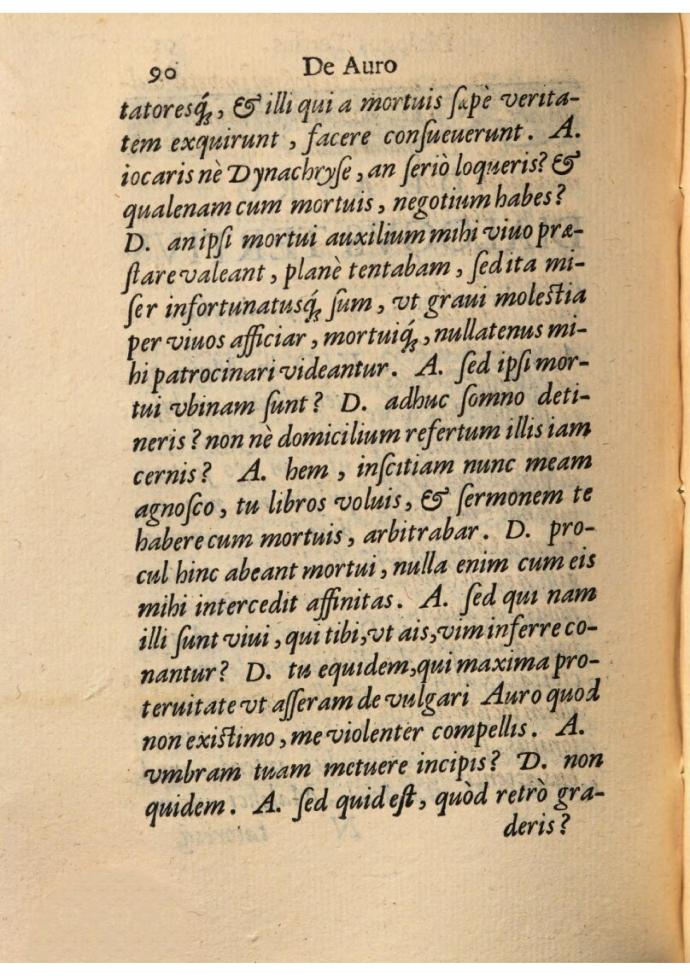 90 De Auro
tatoresq́;, & illi qui a mortuis ſæpè verita-
tem exquirunt, facere conſueuerunt. A.
iocaris nè Dynachryſe, an ſeriò loqueris? &
qualenam cum mortuis, negotium habes?
D. an ipſi mortui auxilium mihi viuo præ-
ſtare valeant, planè tentabam, ſed ita mi-
ſer infortunatusq́; ſum, vt graui moleſtia
per viuos afficiar, mortuiq́;, nullatenus mi-
hi patrocinari videantur. A. ſed ipſi mor-
tui vbinam ſunt? D. adhuc ſomno deti-
neris? non nè domicilium refertum illis iam
cernis? A. hem, inſcitiam nunc meam
agnoſco, tu libros voluis, & ſermonem te
habere cum mortuis, arbitrabar. D. pro-
cul hinc abeant mortui, nulla enim cum eis
mihi intercedit affinitas. A. ſed qui nam
illi ſunt viui, qui tibi, vt ais, vim inferre co-
nantur? D. tu equidem, qui maxima pro-
teruitate vt aſſeram de vulgari Auro quod
non exiſtimo, me violenter compellis. A.
vmbram tuam metuere incipis? D. non
quidem. A. ſed quid eſt, quòd retrò gra-
deris?